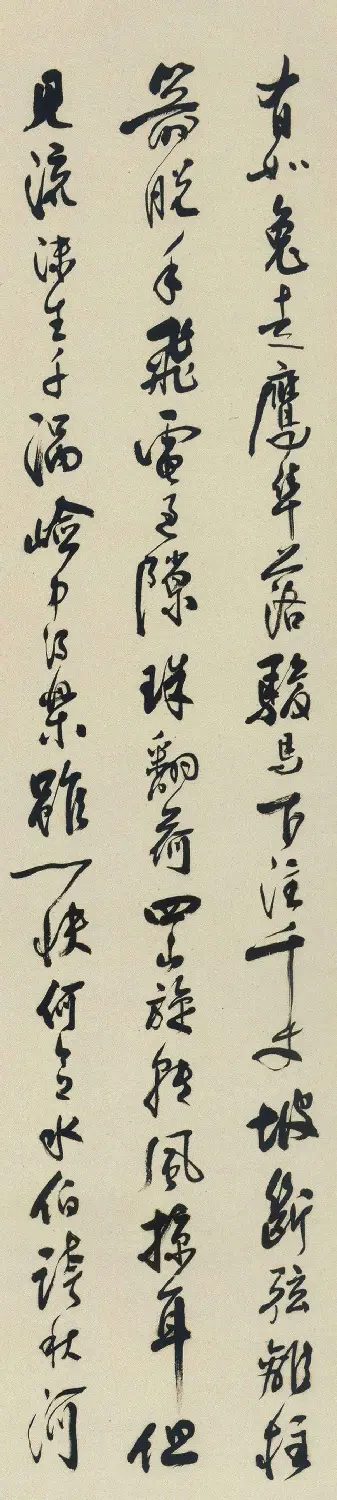 有如兔走鷹隼落駿馬下注千丈坡斷弦離柱
箭脫手飛電過隙珠翻荷四山旋轉風掠耳但
見流沫生千渦嶮中得樂雖一快何意水伯誇秋河